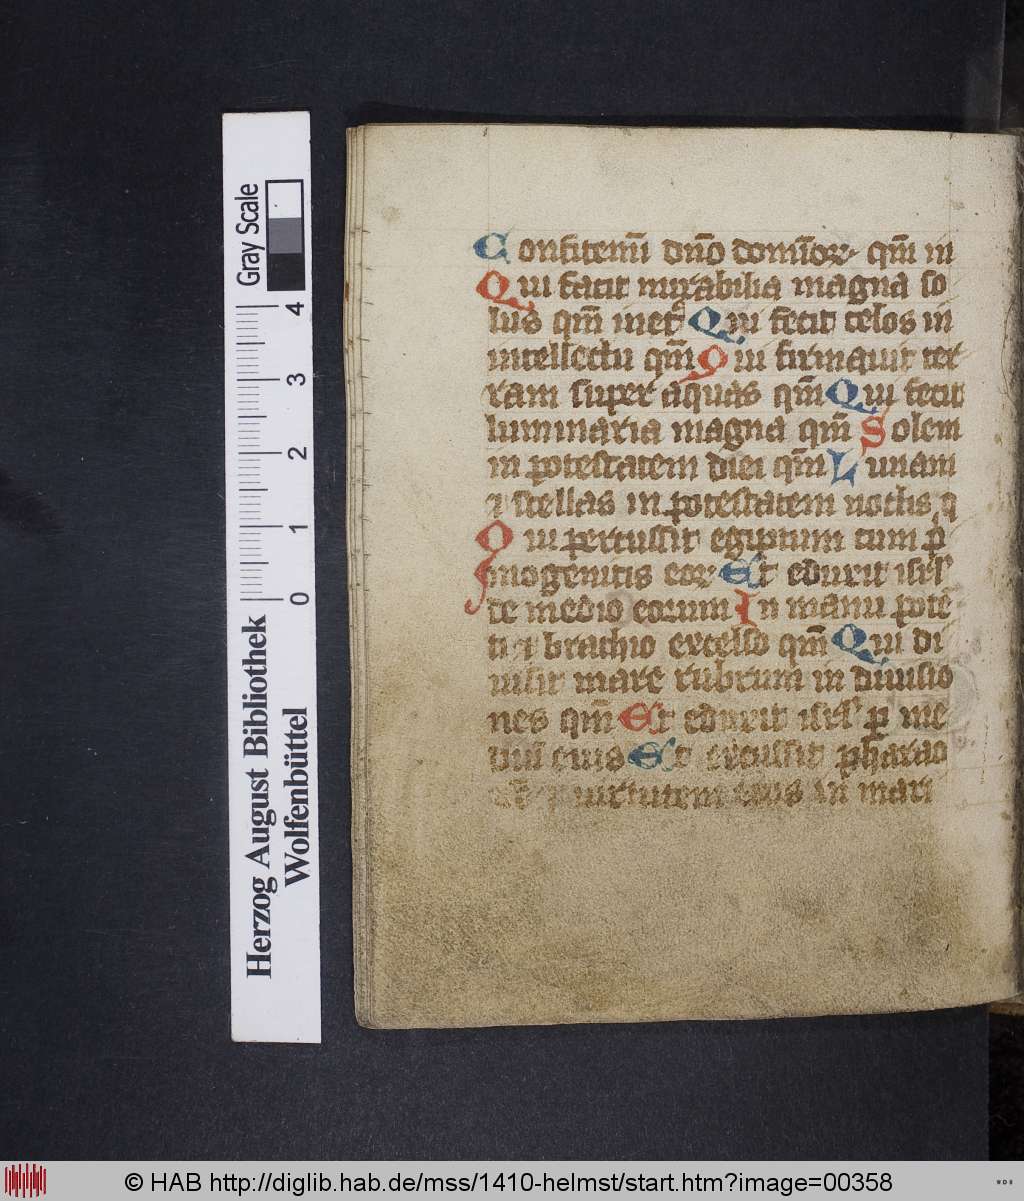 Confitemĩ dño domĩor qm̃ in
Qui facit mirabilia magna so
lus qm̃ in et̾ Qui fecit celos in
intellectu qm̃ Qui firmauit ter
ram super aquas qm̃ Qui fecit
luminaria magna qm̃ Solem
in potestatem diei qm̃ Lunam
⁊ stellas in potestatem noctis q
Qui percussit egiptum cum p̃
mogenitis eor Et eduxit isrl̃
de medio eorum In manu potẽ
ti ⁊ brachio excelso qm̃ Qui di
uisit mare rubrum in diuisio
nes qm̃ Et eduxit isrl̃ p me
diũ eius Et excussit pharao
nẽ ⁊ uirtutem eius in mari
Gray Scale
4
3
2
1
0
Herzog August Bibliothek
Wolfenbüttel
© HAB http://diglib.hab.de/mss/1410-helmst/start.htm?image=00358